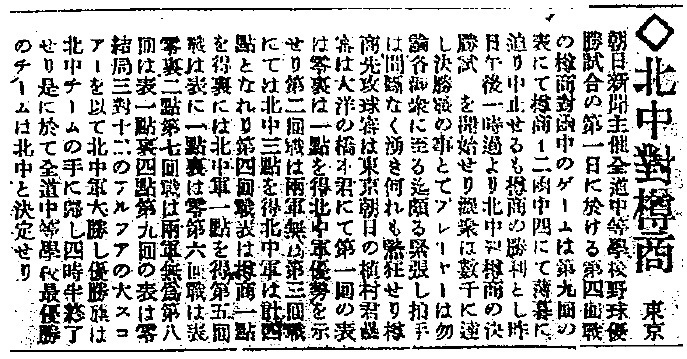 ◇北中對樽商 東京
朝日新聞主催全道中等學校野球優
勝試合の第一日に於ける第四囬戰
の樽商對函中のゲームは第九囬の
表にて樽商十二函中四にて薄暮に
迫り中止せるも樽商の勝利とし昨
日午後一時過より北中對樽商の決
勝試 を開始せり觀衆は數千に達
し決勝戰の事とてプレーヤーは勿
論各應衆に至る迄頗る緊張し拍手
は間斷なく湧き何れも緊狂せり樽
商先攻球審は東京朝日の植村君壘
審は大洋の橋本君にて第一囬の表
は零裏は一點を得北中軍優勢を示
せり第二囬戰は兩軍無爲第三囬戰
にては北中三點を得北中軍は計四
點となれり第四囬戰表は樽商一點
を得裏には北中軍一點を得第五囬
戰は表に一點裏は零第六囬戰は表
零裏二點第七囬戰は兩軍無爲第八
囬は表一點裏四點第九囬の表は零
結局三對十二のアルフアの大スコ
アーを以て北中軍大勝し優勝旗は
北中チームの手に歸し四時半終了
せり是に於て全道中等學校最優勝
のチームは北中と決定せり